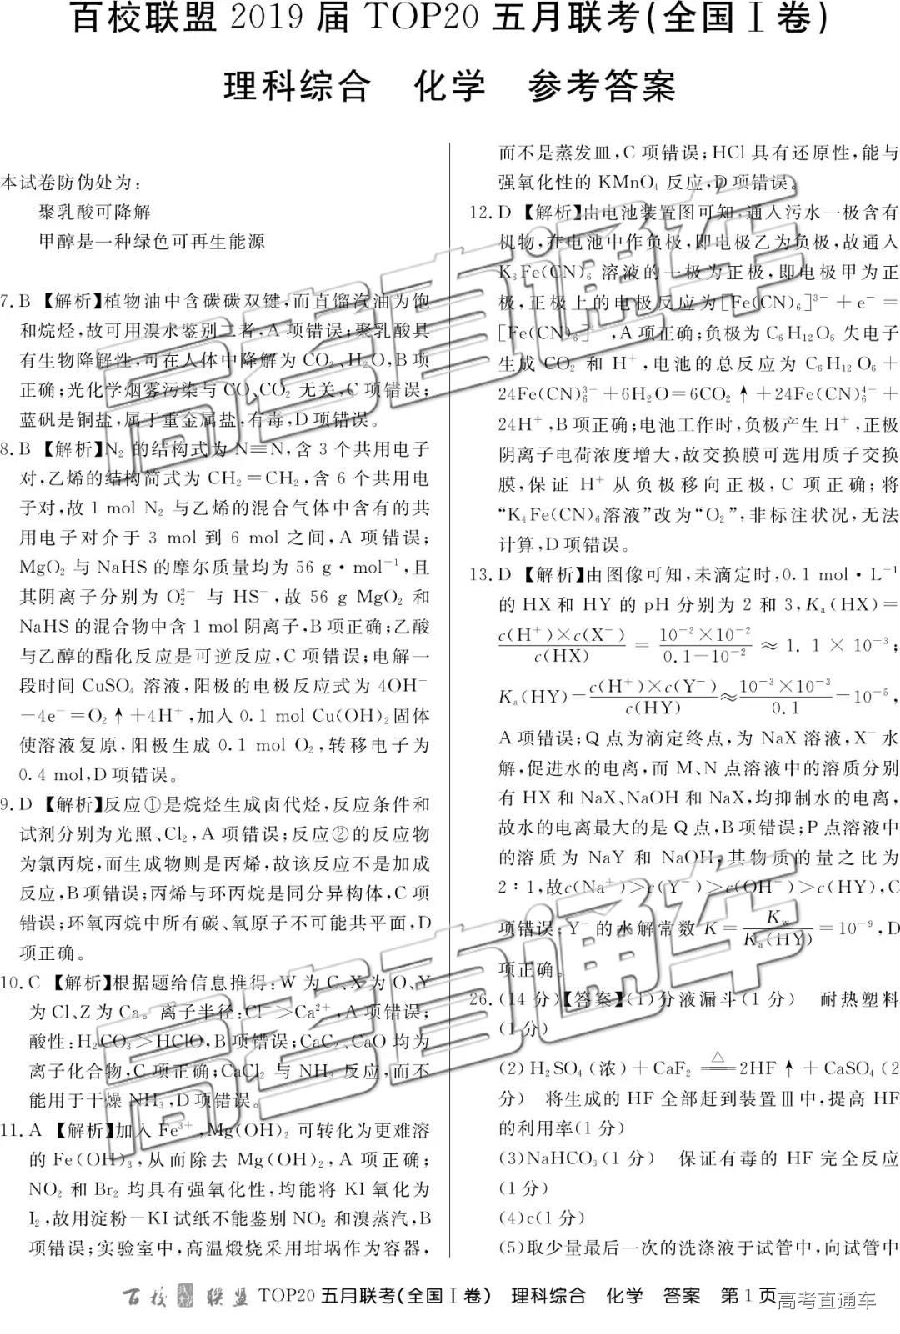 百校联盟 2019 届 TOP20 五月联考(全国Ⅰ卷)
理科综合 化学 参考答案
本试卷防伪处为:
聚乳酸可降解
甲醇是一种绿色可再生能源
7. B 【解析】植物油中含碳碳双键,而直馏汽油为饱
和烷烃,故可用溴水鉴别二者,A 项错误;聚乳酸具
有生物降解性,可在人体中降解为 CO₂、H₂O,B 项
正确;光化学烟雾污染与 CO、CO₂ 无关,C 项错误;
蓝矾是铜盐,属于重金属盐,有毒,D 项错误。
8. B 【解析】N₂ 的结构式为 N≡N,含 3 个共用电子
对,乙烯的结构简式为 CH₂=CH₂,含 6 个共用电
子对,故 1 mol N₂ 与乙烯的混合气体中含有的共
用电子对介于 3 mol 到 6 mol 之间,A 项错误;
MgO₂ 与 NaHS 的摩尔质量均为 56 g·mol⁻¹,且
其阴离子分别为 O₂²⁻ 与 HS⁻,故 56 g MgO₂ 和
NaHS 的混合物中含 1 mol 阴离子,B 项正确;乙酸
与乙醇的酯化反应是可逆反应,C 项错误;电解一
段时间 CuSO₄ 溶液,阳极的电极反应式为 4OH⁻
−4e⁻=O₂↑+4H⁺,加入 0.1 mol Cu(OH)₂ 固体
使溶液复原,阳极生成 0.1 mol O₂,转移电子为
0.4 mol,D 项错误。
9. D 【解析】反应①是烷烃生成卤代烃,反应条件和
试剂分别为光照、Cl₂,A 项错误;反应②的反应物
为氯丙烷,而生成物则是丙烯,故该反应不是加成
反应,B 项错误;丙烯与环丙烷是同分异构体,C 项
错误;环氧丙烷中所有碳、氧原子不可能共平面,D
项正确。
10. C 【解析】根据题给信息推得:W 为 C、X 为 O、Y
为 Cl、Z 为 Ca。离子半径:Cl⁻>Ca²⁺,A 项错误;
酸性:H₂CO₃>HClO,B 项错误;CaC₂、CaO 均为
离子化合物,C 项正确;CaCl₂ 与 NH₃ 反应,而不
能用于干燥 NH₃,D 项错误。
11. A 【解析】加入 Fe³⁺,Mg(OH)₂ 可转化为更难溶
的 Fe(OH)₃,从而除去 Mg(OH)₂,A 项正确;
NO₂ 和 Br₂ 均具有强氧化性,均能将 KI 氧化为
I₂,故用淀粉-KI 试纸不能鉴别 NO₂ 和溴蒸汽,B
项错误;实验室中,高温煅烧采用坩埚作为容器,
而不是蒸发皿,C 项错误;HCl 具有还原性,能与
强氧化性的 KMnO₄ 反应,D 项错误。
12. D 【解析】由电池装置图可知,通入污水一极含有
机物,在电池中作负极,即电极乙为负极,故通入
K₃Fe(CN)₆ 溶液的一极为正极,即电极甲为正
极,正极上的电极反应为[Fe(CN)₆]³⁻+e⁻=
[Fe(CN)₆]⁴⁻,A 项正确;负极为 C₆H₁₂O₆ 失电子
生成 CO₂ 和 H⁺,电池的总反应为 C₆H₁₂O₆+
24Fe(CN)₆³⁻+6H₂O=6CO₂↑+24Fe(CN)₆⁴⁻+
24H⁺,B 项正确;电池工作时,负极产生 H⁺,正极
阴离子电荷浓度增大,故交换膜可选用质子交换
膜,保证 H⁺ 从负极移向正极,C 项正确;将
“K₄Fe(CN)₆ 溶液”改为“O₂”,非标注状况,无法
计算,D 项错误。
13. D 【解析】由图像可知,未滴定时,0.1 mol·L⁻¹
的 HX 和 HY 的 pH 分别为 2 和 3,Kₐ(HX)=
c(H⁺)×c(X⁻)/c(HX)=10⁻²×10⁻²/(0.1−10⁻²)≈1.1×10⁻³;
Kₐ(HY)=c(H⁺)×c(Y⁻)/c(HY)≈10⁻³×10⁻³/0.1=10⁻⁵,
A 项错误;Q 点为滴定终点,为 NaX 溶液,X⁻ 水
解,促进水的电离,而 M、N 点溶液中的溶质分别
有 HX 和 NaX、NaOH 和 NaX,均抑制水的电离,
故水的电离最大的是 Q 点,B 项错误;P 点溶液中
的溶质为 NaY 和 NaOH,其物质的量之比为
2∶1,故c(Na⁺)>c(Y⁻)>c(OH⁻)>c(HY),C
项错误;Y⁻ 的水解常数 K=K_w/Kₐ(HY)=10⁻⁹,D
项正确。
26. (14 分)【答案】(1)分液漏斗(1 分) 耐热塑料
(1 分)
(2)H₂SO₄(浓)+CaF₂ =△= 2HF↑+CaSO₄(2
分) 将生成的 HF 全部赶到装置Ⅲ中,提高 HF
的利用率(1 分)
(3)NaHCO₃(1 分) 保证有毒的 HF 完全反应
(1 分)
(4)c(1 分)
(5)取少量最后一次的洗涤液于试管中,向试管中
百校联盟 TOP20 五月联考(全国Ⅰ卷) 理科综合 化学 答案 第 1 页
高考直通车
高考直通车
高考直通车